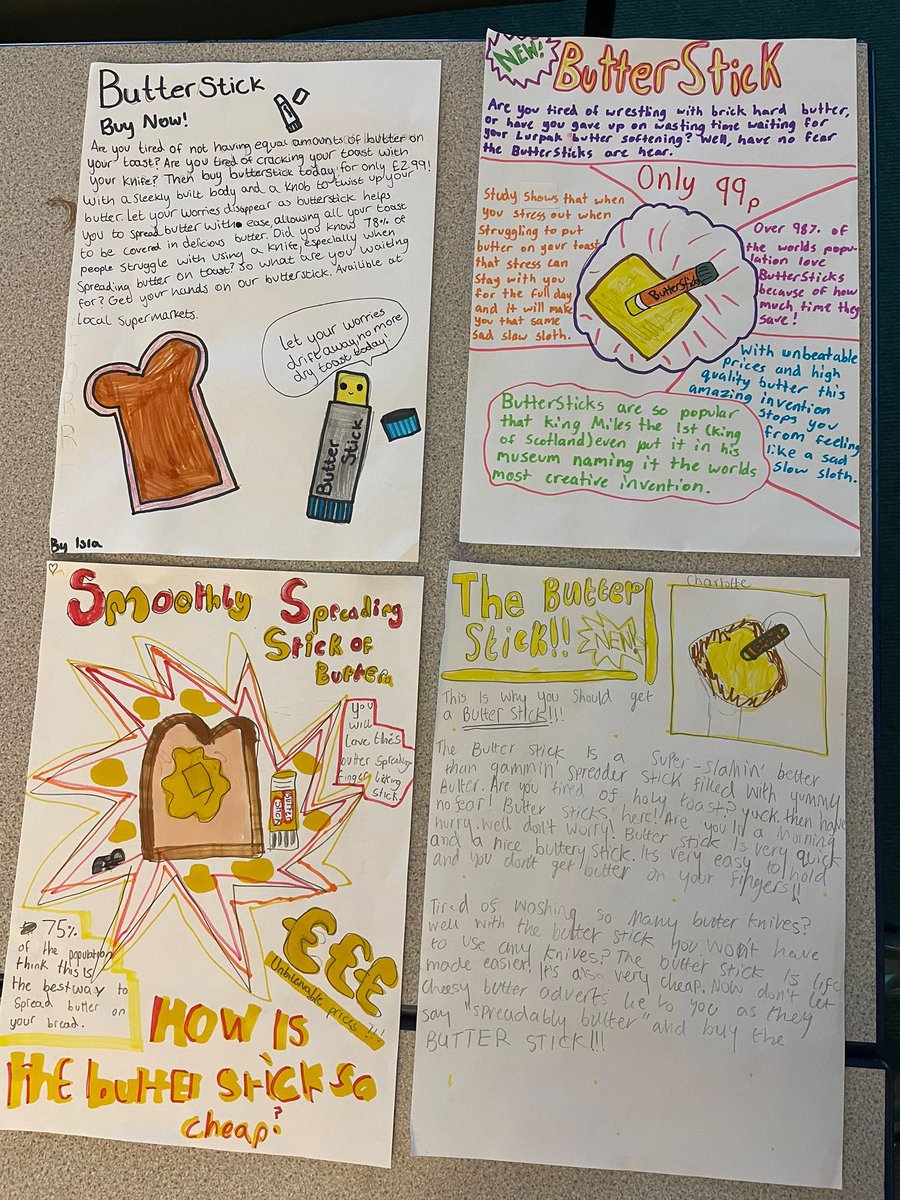 ButterStick
Buy Now!
Are you tired of not having equal amounts of butter on
your toast? Are you tired of cracking your toast with
your knife? Then buy butterstick today for only £2.99!
With a sleekly built body and a knob to twist up your
butter. let your worries disappear as butterstick helps
you to spread butter with ease, allowing all your toast
to be covered in delicious butter. Did you know 78% of
people struggle with using a knife, especially when
Spreading butter on toast? So what are you waiting
for? Get your hands on our butterstick. Availible at
local supermarkets.
let your worries
drift away, no more
dry toast today!
Butter
Stick
By Isla
NEW!
ButterStick
Are you tired of wrestling with brick hard butter,
or have you gave up on wasting time waiting for
your Lurpak butter softening? Well, have no fear
the ButterSticks are hear.
Only 99p
Study Shows that when
you stress out when
Struggling to put
butter on your toast
that stress can
Stay with you
for the full day
and it will make
you that same
sad slow sloth.
ButterStick
Over 98% of
the worlds popu-
lation love
ButterSticks
because of how
much time they
save!
With unbeatable
prices and high
quality butter this
amazing invention
stops you
from feeling
like a sad
slow sloth.
ButterSticks are so popular
that King Miles the 1st (king
of Scotland) even put it in his
museum naming it the worlds
most creative invention.
Smoothly Spreading
Stick of
Butter
you
will
love this
butter spreading
finger licking
stick
BUTTER
STICK
75%
of the population
think this is
the best way to
spread butter on
your bread.
£££
Unbelievable pricks !!!
HOW IS
the butter stick so
cheap?
The Butter
Stick!!
NEW!
Charlotte
This Is why you Should get
a Butter Stick!!!
The Butter stick Is a super-slamin' better
than gammin' spreader stick filled with yummy
Butter. Are you tired of holy toast? yuck then have
no fear! Butter sticks here!! Are you In a Morning
hurry. well don't worry! Butter stick Is very quick
and a nice buttery stick. Its very easy to hold
and you don't get butter on your fingers!!
Tired of washing so many butter knives?
well with the butter stick you won't have
to use any knives? The butter stick Is life
made easier! It's also very cheap. Now don't let
cheesy butter adverts lie to you as they
say "spreadably butter" and buy the
BUTTER STICK!!!